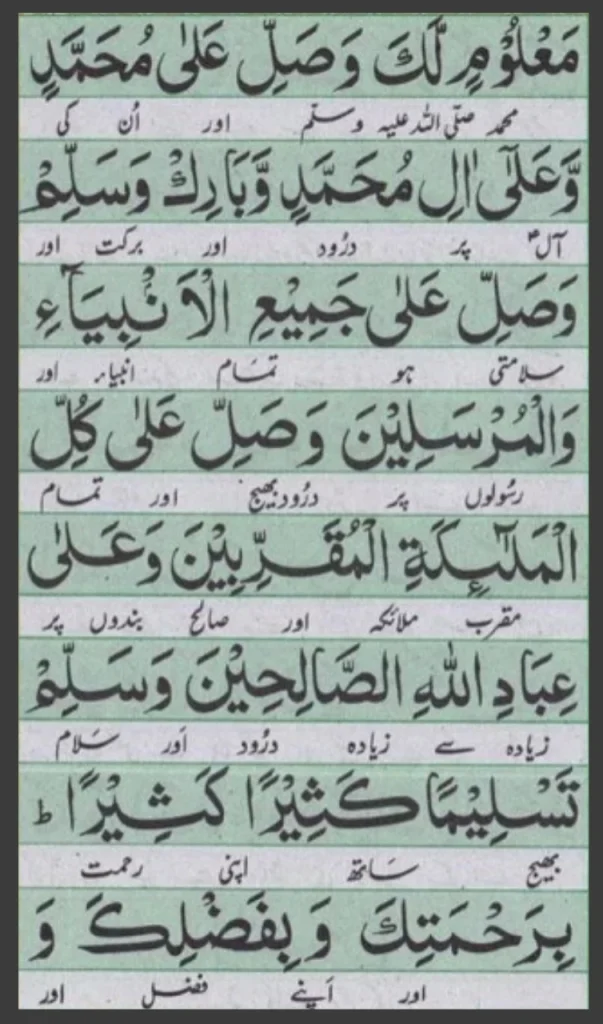 مَعْلُوْمٍ لَّكَ وَصَلِّ عَلٰى مُحَمَّدٍ
محمد صلّی اللہ علیہ وسلّم اور اُن کی
وَّعَلٰٓى اٰلِ مُحَمَّدٍ وَّبَارِكْ وَسَلِّمْ
آلؑ پر درُود اور برکت اور
وَصَلِّ عَلٰى جَمِيْعِ الْاَنْۢبِيَآءِ
سلامتی ہو تمام انبیاء اور
وَالْمُرْسَلِيْنَ وَصَلِّ عَلٰى كُلِّ
رسُولوں پر درُود بھیج اور تمام
الْمَلٰٓئِكَةِ الْمُقَرَّبِيْنَ وَعَلٰى
مقرب ملائکہ اور صالح بندوں پر
عِبَادِ اللّٰهِ الصَّالِحِيْنَ وَسَلِّمْ
زیادہ سے زیادہ درُود اور سَلام
تَسْلِيْمًا كَثِيْرًا كَثِيْرًا ط
بھیج سَاتھ اپنی رحمت
بِرَحْمَتِكَ وَبِفَضْلِكَ وَ
اور اَپنے فضل اور